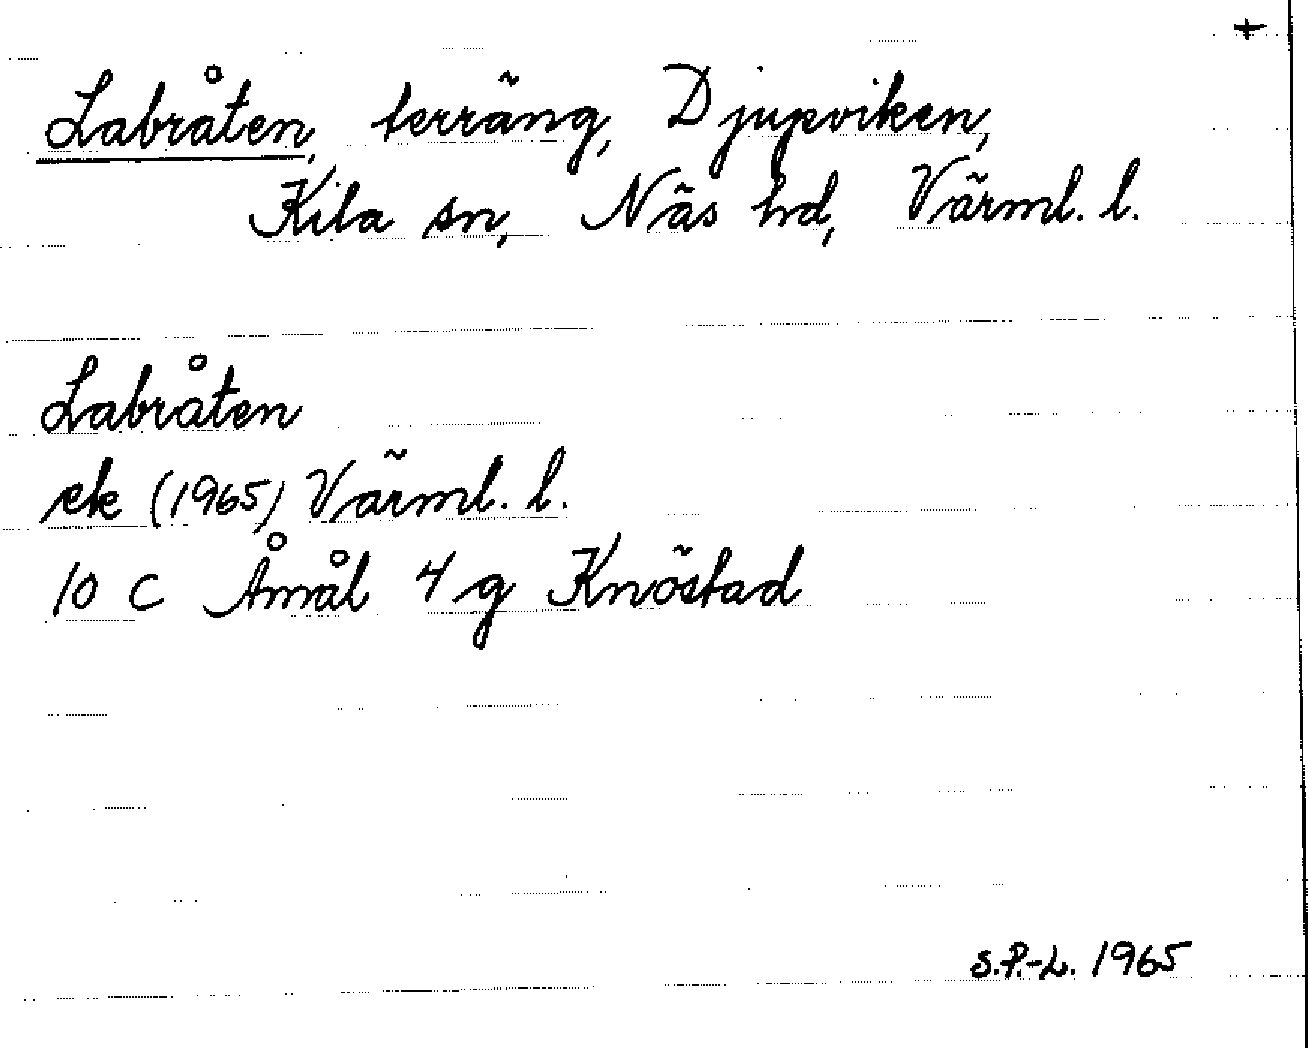 +
Labråten, terräng, Djupviken,
Kila sn, Näs hd, Värml. l.
Labråten
ek (1965) Värml. l.
10 C Åmål 4 g Knöstad
S.P.-L. 1965